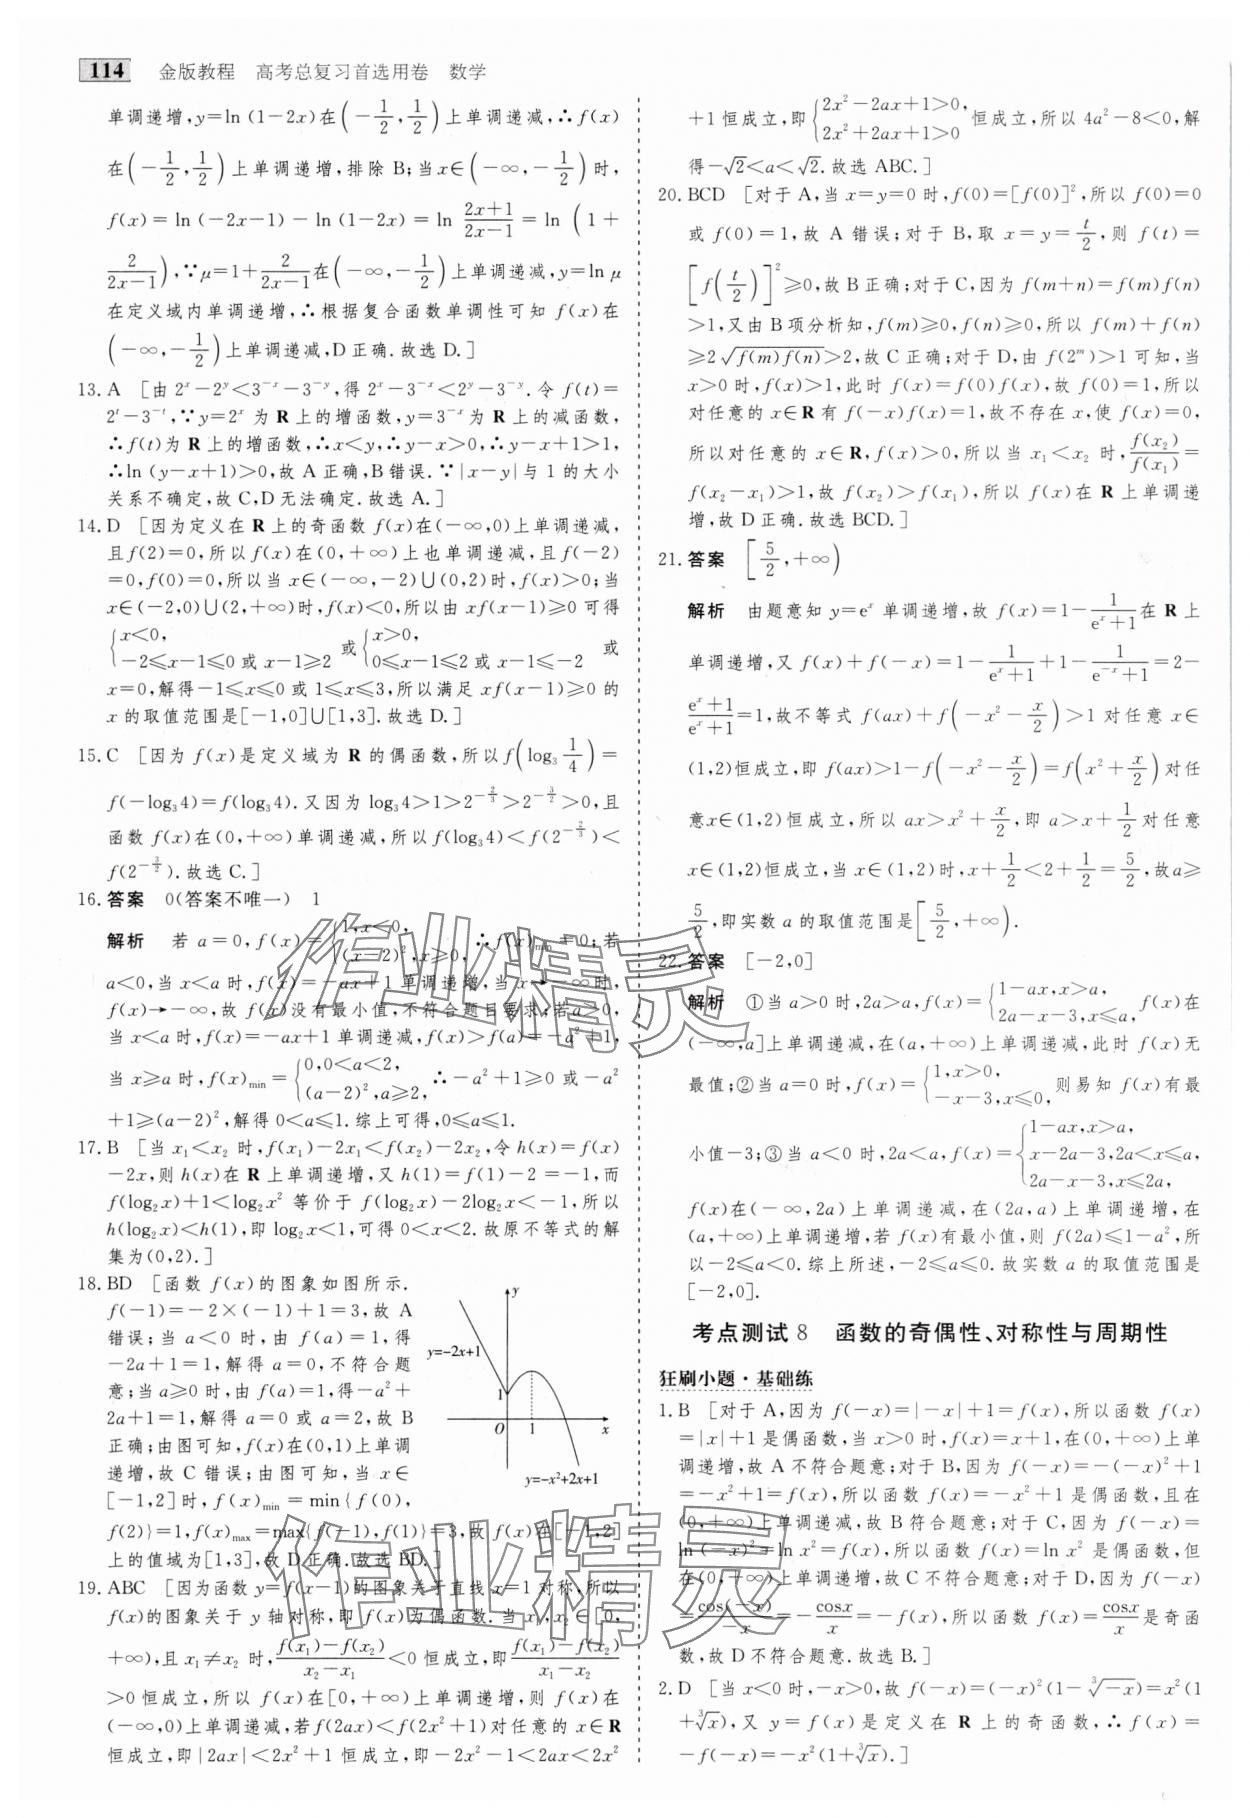 114 金版教程 高考总复习首选用卷 数学
单调递增,y=ln (1-2x)在(-1/2,1/2)上单调递减,∴f(x)
在(-1/2,1/2)上单调递增,排除 B;当x∈(-∞,-1/2)时,
f(x)=ln (-2x-1)-ln (1-2x)=ln (2x+1)/(2x-1)=ln (1+
2/(2x-1)),∵μ=1+2/(2x-1)在(-∞,-1/2)上单调递减,y=ln μ
在定义域内单调递增,∴根据复合函数单调性可知 f(x)在
(-∞,-1/2)上单调递减,D正确.故选 D.]
13. A [由 2^x-2^y<3^(-x)-3^(-y),得 2^x-3^(-x)<2^y-3^(-y).令 f(t)=
2^t-3^(-t),∵y=2^x 为 R 上的增函数,y=3^(-x)为 R 上的减函数,
∴f(t)为 R 上的增函数,∴x<y,∴y-x>0,∴y-x+1>1,
∴ln (y-x+1)>0,故 A 正确,B 错误.∵|x-y|与 1 的大小
关系不确定,故 C,D 无法确定.故选 A.]
14. D [因为定义在 R 上的奇函数 f(x)在(-∞,0)上单调递减,
且f(2)=0,所以 f(x)在(0,+∞)上也单调递减,且f(-2)
=0,f(0)=0,所以当 x∈(-∞,-2)∪(0,2)时,f(x)>0;当
x∈(-2,0)∪(2,+∞)时,f(x)<0,所以由 xf(x-1)≥0 可得
{x<0, -2≤x-1≤0 或 x-1≥2 或 {x>0, 0≤x-1≤2 或 x-1≤-2 或
x=0,解得-1≤x≤0 或 1≤x≤3,所以满足 xf(x-1)≥0 的
x 的取值范围是[-1,0]∪[1,3].故选 D.]
15. C [因为 f(x)是定义域为 R 的偶函数,所以 f(log₃ 1/4)=
f(-log₃4)=f(log₃4).又因为 log₃4>1>2^(-2/3)>2^(-3/2)>0,且
函数 f(x)在(0,+∞)单调递减,所以f(log₃4)<f(2^(-2/3))<
f(2^(-3/2)).故选 C.]
16. 答案 0(答案不唯一) 1
解析 若 a=0,f(x)={1,x<0, (x-2)²,x≥0, ∴f(x)min=0;若
a<0,当 x<a 时,f(x)=-ax+1 单调递增,当 x→-∞时,
f(x)→-∞,故f(x)没有最小值,不符合题目要求;若a>0,
当 x<a 时,f(x)=-ax+1 单调递减,f(x)>f(a)=-a²+1,
当 x≥a 时,f(x)min={0,0<a<2, (a-2)²,a≥2, ∴-a²+1≥0 或-a²
+1≥(a-2)²,解得 0<a≤1.综上可得,0≤a≤1.
17. B [当 x₁<x₂ 时,f(x₁)-2x₁<f(x₂)-2x₂,令 h(x)=f(x)
-2x,则 h(x)在 R 上单调递增,又 h(1)=f(1)-2=-1,而
f(log₂x)+1<log₂x² 等价于 f(log₂x)-2log₂x<-1,所以
h(log₂x)<h(1),即 log₂x<1,可得 0<x<2.故原不等式的解
集为(0,2).]
18. BD [函数 f(x)的图象如图所示.
f(-1)=-2×(-1)+1=3,故 A
错误;当 a<0 时,由 f(a)=1,得
-2a+1=1,解得 a=0,不符合题
意;当 a≥0 时,由f(a)=1,得-a²+
2a+1=1,解得 a=0 或 a=2,故 B
正确;由图可知,f(x)在(0,1)上单调
递增,故 C 错误;由图可知,当 x∈
[-1,2]时,f(x)min=min{f(0),
f(2)}=1,f(x)max=max{f(-1),f(1)}=3,故 f(x)在[-1,2]
上的值域为[1,3],故 D 正确.故选 BD.]
y
y=-2x+1
1
O 1 x
y=-x²+2x+1
19. ABC [因为函数 y=f(x-1)的图象关于直线 x=1 对称,所以
f(x)的图象关于 y 轴对称,即 f(x)为偶函数.当 x₁,x₂∈[0,
+∞),且x₁≠x₂ 时,(f(x₁)-f(x₂))/(x₂-x₁)<0 恒成立,即(f(x₁)-f(x₂))/(x₁-x₂)
>0 恒成立,所以 f(x)在[0,+∞)上单调递增,则 f(x)在
(-∞,0)上单调递减,若f(2ax)<f(2x²+1)对任意的 x∈R
恒成立,即|2ax|<2x²+1 恒成立,即-2x²-1<2ax<2x²
+1恒成立,即{2x²-2ax+1>0, 2x²+2ax+1>0 恒成立,所以 4a²-8<0,解
得-√2<a<√2.故选 ABC.]
20. BCD [对于 A,当 x=y=0 时,f(0)=[f(0)]²,所以 f(0)=0
或 f(0)=1,故 A 错误;对于 B,取 x=y=t/2,则 f(t)=
[f(t/2)]²≥0,故 B 正确;对于 C,因为 f(m+n)=f(m)f(n)
>1,又由 B 项分析知,f(m)≥0,f(n)≥0,所以 f(m)+f(n)
≥2√(f(m)f(n))>2,故 C 正确;对于 D,由 f(2^m)>1 可知,当
x>0 时,f(x)>1,此时 f(x)=f(0)f(x),故 f(0)=1,所以
对任意的 x∈R 有 f(-x)f(x)=1,故不存在 x,使 f(x)=0,
所以对任意的 x∈R,f(x)>0,所以当 x₁<x₂ 时,f(x₂)/f(x₁)=
f(x₂-x₁)>1,故 f(x₂)>f(x₁),所以 f(x)在 R 上单调递
增,故 D 正确.故选 BCD.]
21. 答案 [5/2,+∞)
解析 由题意知 y=e^x 单调递增,故 f(x)=1-1/(e^x+1)在 R 上
单调递增,又 f(x)+f(-x)=1-1/(e^x+1)+1-1/(e^(-x)+1)=2-
(e^x+1)/(e^x+1)=1,故不等式 f(ax)+f(-x²-x/2)>1 对任意 x∈
(1,2)恒成立,即 f(ax)>1-f(-x²-x/2)=f(x²+x/2)对任
意x∈(1,2)恒成立,所以 ax>x²+x/2,即 a>x+1/2对任意
x∈(1,2)恒成立,当 x∈(1,2)时,x+1/2<2+1/2=5/2,故a≥
5/2,即实数 a 的取值范围是[5/2,+∞).
22. 答案 [-2,0]
解析 ①当 a>0 时,2a>a,f(x)={1-ax,x>a, 2a-x-3,x≤a, f(x)在
(-∞,a]上单调递减,在(a,+∞)上单调递减,此时 f(x)无
最值;②当 a=0 时,f(x)={1,x>0, -x-3,x≤0, 则易知 f(x)有最
小值-3;③当 a<0 时,2a<a,f(x)={1-ax,x>a, x-2a-3,2a<x≤a, 2a-x-3,x≤2a,
f(x)在(-∞,2a)上单调递减,在(2a,a)上单调递增,在
(a,+∞)上单调递增,若 f(x)有最小值,则 f(2a)≤1-a²,所
以-2≤a<0.综上所述,-2≤a≤0.故实数 a 的取值范围是
[-2,0].
考点测试 8 函数的奇偶性、对称性与周期性
狂刷小题·基础练
1. B [对于 A,因为 f(-x)=|-x|+1=f(x),所以函数 f(x)
=|x|+1 是偶函数,当 x>0 时,f(x)=x+1,在(0,+∞)上单
调递增,故 A 不符合题意;对于 B,因为 f(-x)=-(-x)²+1
=-x²+1=f(x),所以函数 f(x)=-x²+1 是偶函数,且在
(0,+∞)上单调递减,故 B 符合题意;对于 C,因为 f(-x)=
ln (-x)²=ln x²=f(x),所以函数 f(x)=ln x² 是偶函数,但
在(0,+∞)上单调递增,故 C 不符合题意;对于 D,因为f(-x)
=cos(-x)/(-x)=-cosx/x=-f(x),所以函数 f(x)=cosx/x是奇函
数,故 D 不符合题意.故选 B.]
2. D [当 x<0 时,-x>0,故 f(-x)=(-x)²(1-∛(-x))=x²(1
+∛x),又 y=f(x)是定义在 R 上的奇函数,∴f(x)=
-f(-x)=-x²(1+∛x).]
作业精灵
作业精灵